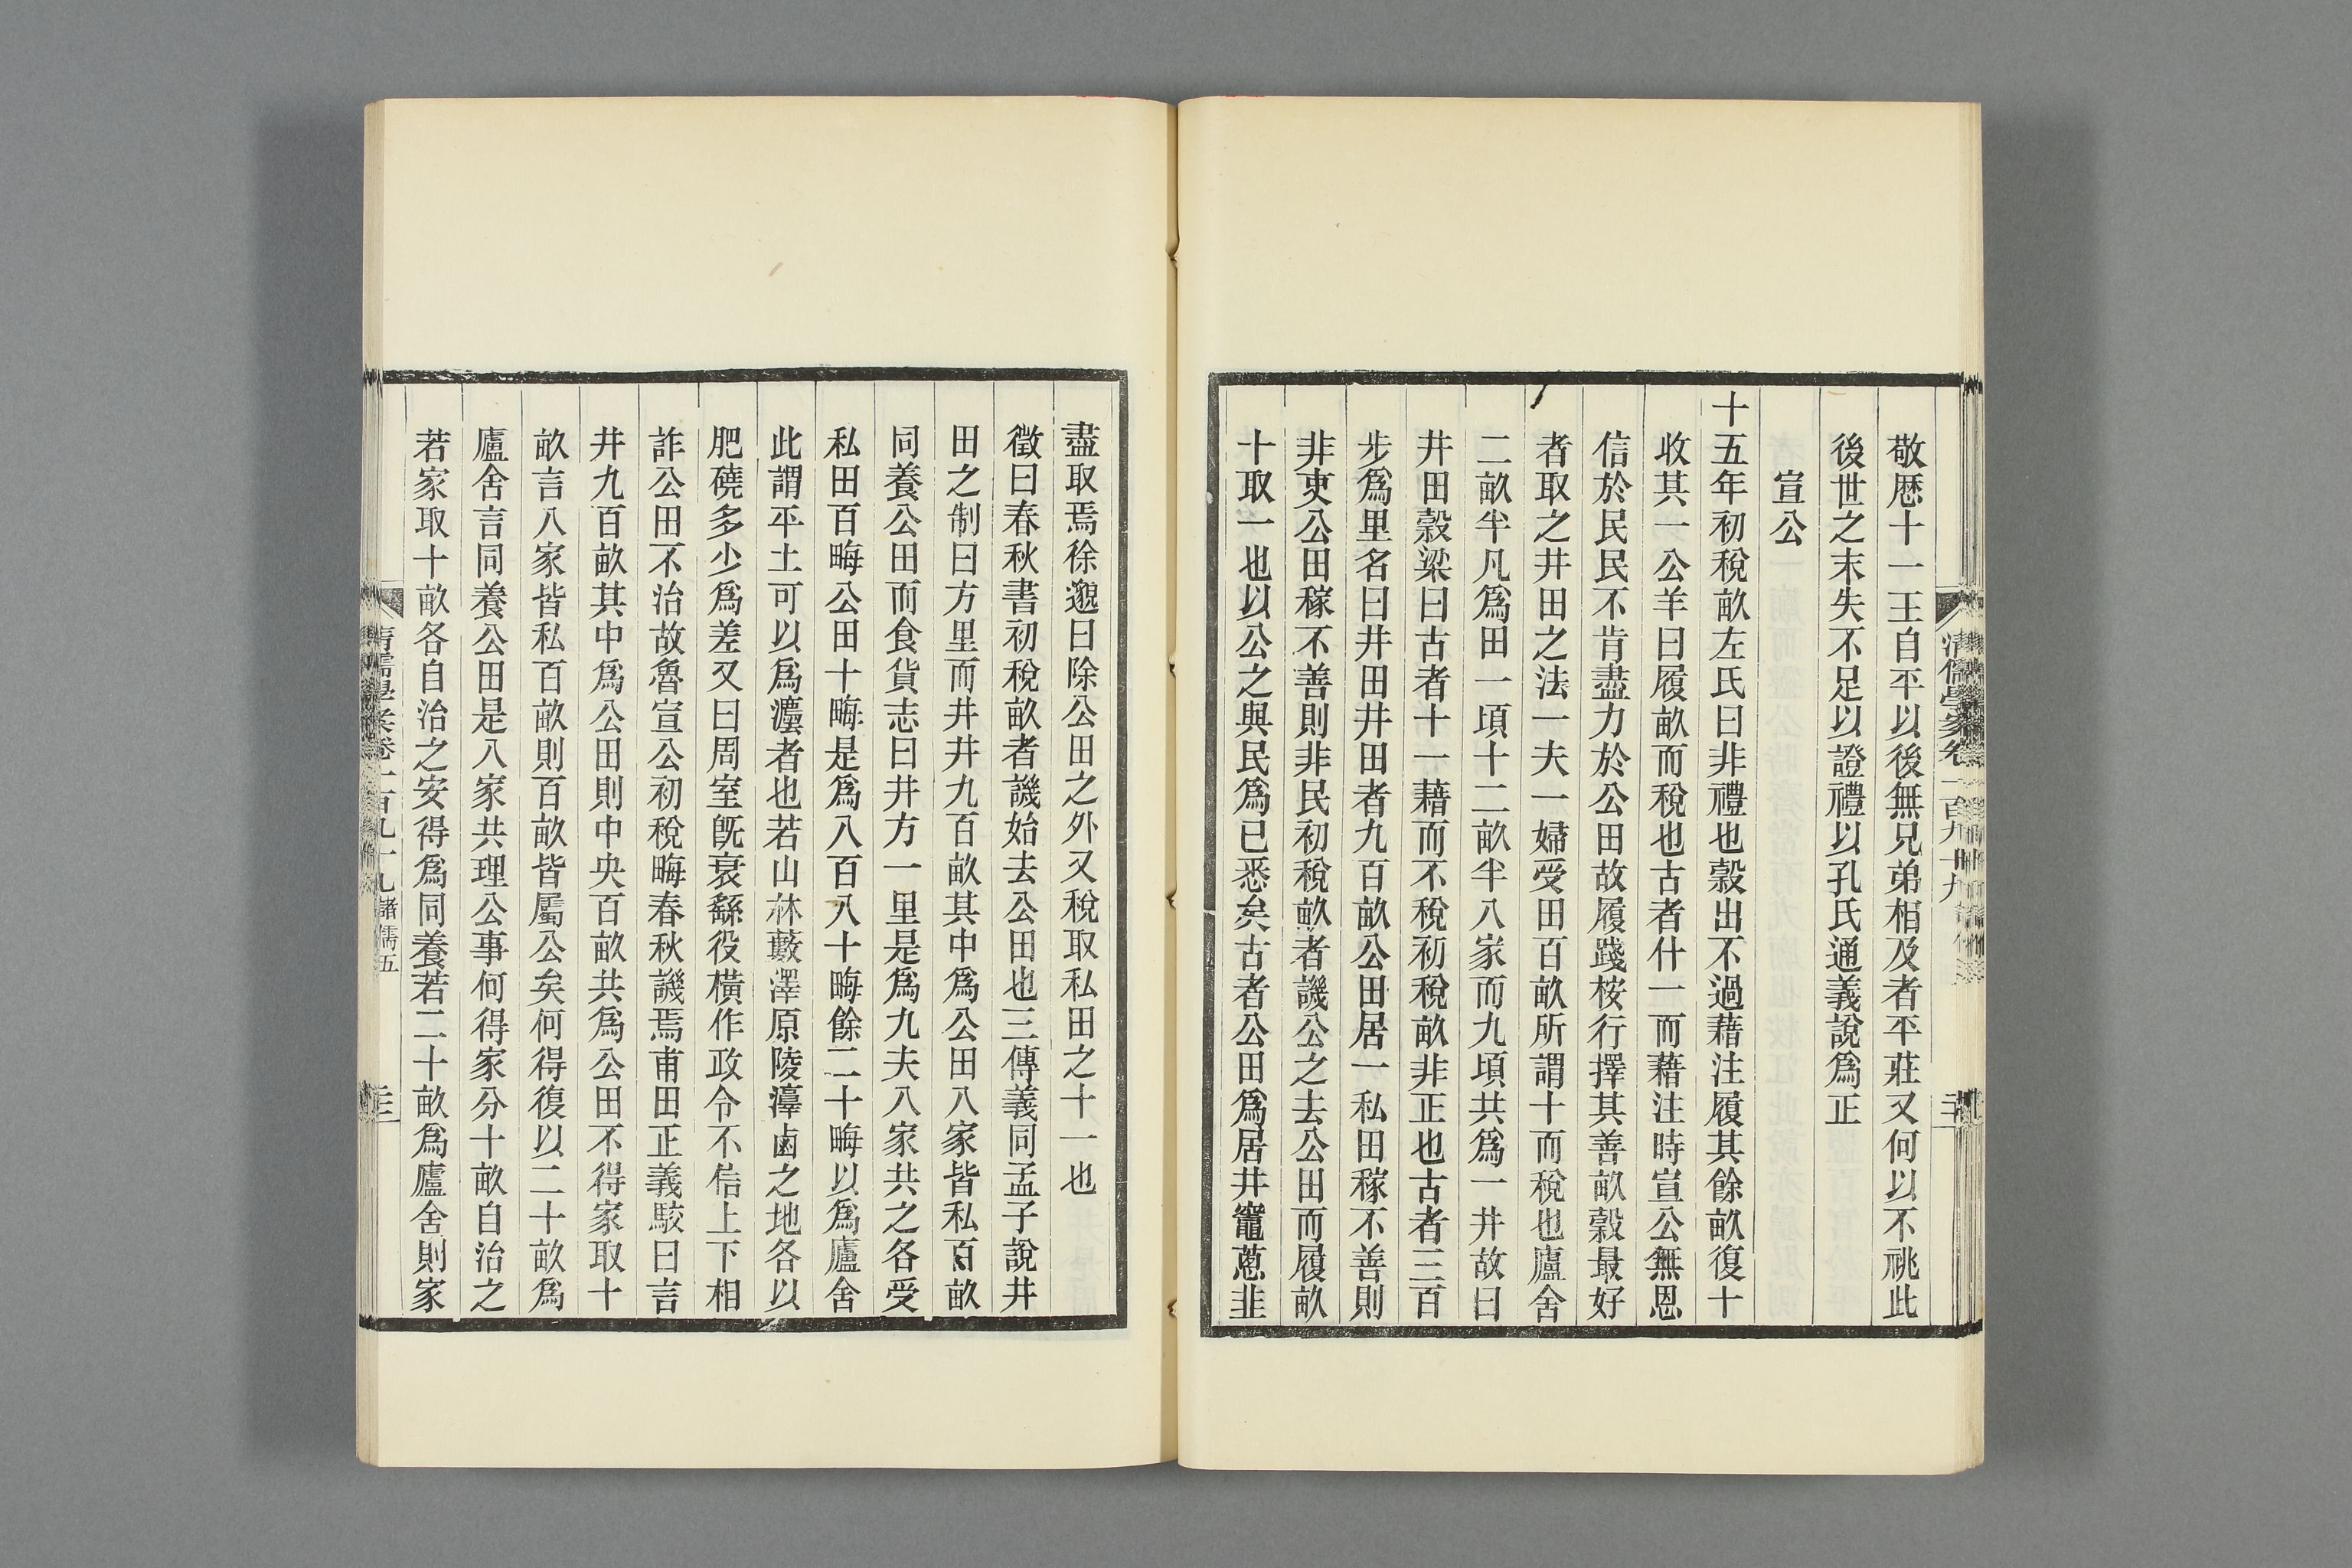 敬歷十一王自平以後無兄弟相及者平莊又何以不祧此
後世之末失不足以證禮以孔氏通義說爲正
宣公
十五年初稅畝左氏曰非禮也穀出不過藉注履其餘畝復十
收其一公羊曰履畝而稅也古者什一而藉注時宣公無恩
信於民民不肯盡力於公田故履踐桉行擇其善畝穀最好
者取之井田之法一夫一婦受田百畝所謂十而稅也廬舍
二畝半凡爲田一頃十二畝半八家而九頃共爲一井故曰
井田穀梁曰古者十一藉而不稅初稅畝非正也古者三百
步爲里名曰井田井田者九百畝公田居一私田稼不善則
非吏公田稼不善則非民初稅畝者譏公之去公田而履畝
十取一也以公之與民爲已悉矣古者公田爲居井竈蔥韭
盡取焉徐邈曰除公田之外又稅取私田之十一也
徵曰春秋書初稅畝者譏始去公田也三傳義同孟子說井
田之制曰方里而井井九百畝其中爲公田八家皆私百畝
同養公田而食貨志曰井方一里是爲九夫八家共之各受
私田百晦公田十晦是爲八百八十晦餘二十晦以爲廬舍
此謂平土可以爲灋者也若山林藪澤原陵淳鹵之地各以
肥磽多少爲差又曰周室旣衰繇役橫作政令不信上下相
詐公田不治故魯宣公初稅晦春秋譏焉甫田正義駁曰言
井九百畝其中爲公田則中央百畝共爲公田不得家取十
畝言八家皆私百畝則百畝皆屬公矣何得復以二十畝爲
廬舍言同養公田是八家共理公事何得家分十畝自治之
若家取十畝各自治之安得爲同養若二十畝爲廬舍則家
清儒學案卷一百九十九 諸儒五